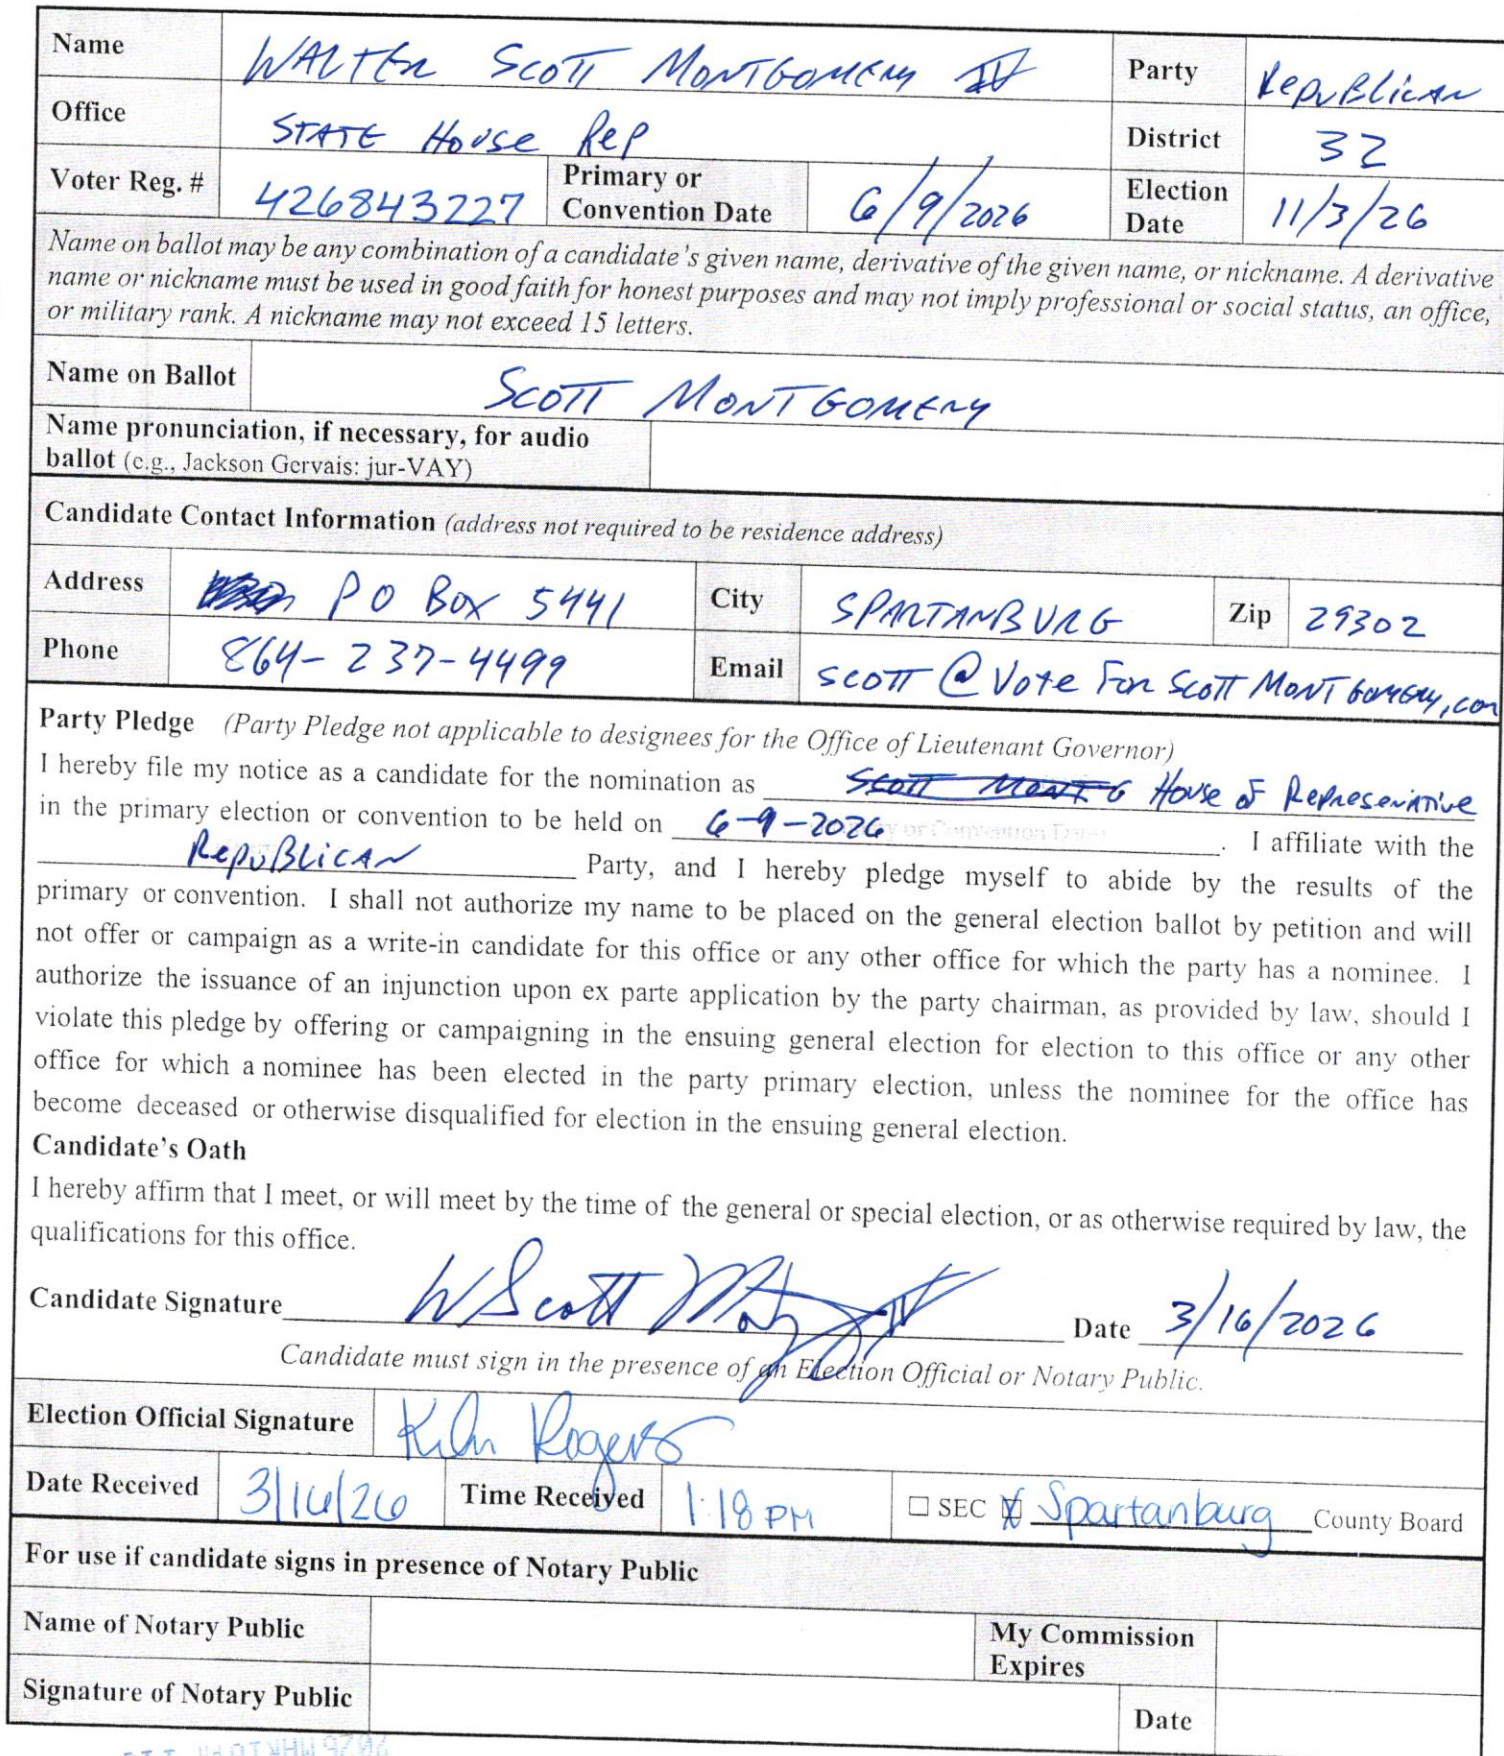 Name WALTER SCOTT MONTGOMERY IV Party RepuBlican
Office STATE House Rep District 32
Voter Reg. # 426843227 Primary or Convention Date 6/9/2026 Election Date 11/3/26
Name on ballot may be any combination of a candidate's given name, derivative of the given name, or nickname. A derivative
name or nickname must be used in good faith for honest purposes and may not imply professional or social status, an office,
or military rank. A nickname may not exceed 15 letters.
Name on Ballot SCOTT MONTGOMERY
Name pronunciation, if necessary, for audio
ballot (e.g., Jackson Gervais: jur-VAY)
Candidate Contact Information (address not required to be residence address)
Address PO Box 5441 City SPARTANBURG Zip 29302
Phone 864-237-4499 Email scott@VoteForScottMontgomery.com
Party Pledge (Party Pledge not applicable to designees for the Office of Lieutenant Governor)
I hereby file my notice as a candidate for the nomination as SCOTT MONTG House of Representative
in the primary election or convention to be held on 6-9-2026 . I affiliate with the
RepuBlican Party, and I hereby pledge myself to abide by the results of the
primary or convention. I shall not authorize my name to be placed on the general election ballot by petition and will
not offer or campaign as a write-in candidate for this office or any other office for which the party has a nominee. I
authorize the issuance of an injunction upon ex parte application by the party chairman, as provided by law, should I
violate this pledge by offering or campaigning in the ensuing general election for election to this office or any other
office for which a nominee has been elected in the party primary election, unless the nominee for the office has
become deceased or otherwise disqualified for election in the ensuing general election.
Candidate's Oath
I hereby affirm that I meet, or will meet by the time of the general or special election, or as otherwise required by law, the
qualifications for this office.
Candidate Signature W Scott IV Date 3/16/2026
Candidate must sign in the presence of an Election Official or Notary Public.
Election Official Signature Rogers
Date Received 3/16/26 Time Received 1:18 PM ☐ SEC ☒ Spartanburg County Board
For use if candidate signs in presence of Notary Public
Name of Notary Public My Commission Expires
Signature of Notary Public Date